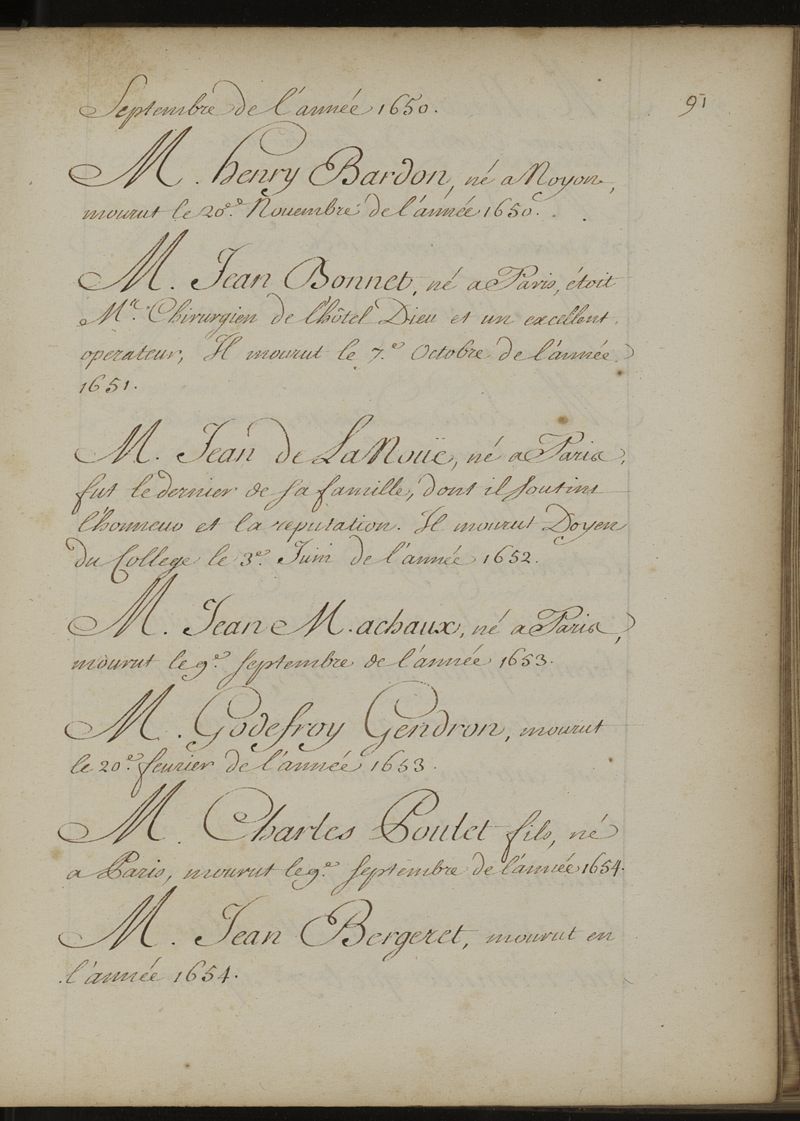 91
Septembre de l'année 1650.
M. henry Bardon, né a Noyon,
mourut le 20.e Novembre de l'année 1650.
M. Jean Bonnet, né a Paris, étoit
M.e Chirurgien de l'hôtel Dieu et un excellent
operateur, Il mourut le 7.e Octobre de l'année
1651.
M. Jean de La Noüe, né a Paris,
fut le dernier de sa famille, dont il soutint
l'honneur et la reputation. Il mourut Doyen
du College le 3.e Juin de l'année 1652.
M. Jean Machaux, né a Paris,
mourut le 9.e Septembre de l'année 1653.
M. Godefroy Gendron, mourut
le 20.e feurier de l'année 1653.
M. Charles Poulet fils, né
a Paris, mourut le 9.e Septembre de l'année 1654.
M. Jean Bergeret, mourut en
l'année 1654.